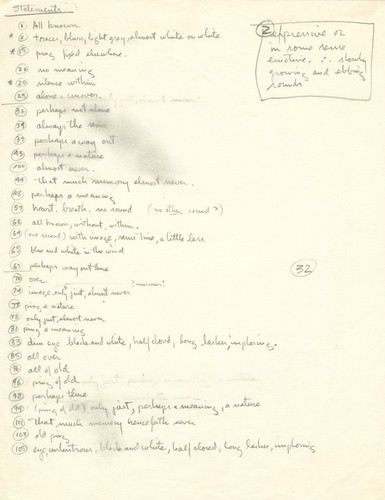 Statements
1 All known
* 2 traces, blurs, light grey, almost white on white
* 15 ping fixed elsewhere.
22 no meaning
* 20 silence within
25 alone unover
32 perhaps not alone
34 always the same
37 perhaps a way out
43 perhaps a nature
100 almost never.
44 that much memory almost never.
45 perhaps a meaning
57 heart. breath. no sound (no other sound?)
68 all known, without, within.
69 (one second) with image, same time, a little less
65 blue and white in the wind
67 perhaps way out there
70 over
74 image, only just, almost never
78 ping a nature
75 only just, almost never
81 ping a meaning
83 dim eye black and white, half closed, long lashes, imploring.
85 all over
91 all of old
96 ping of old
98 perhaps there
99 (ping of old) only just, perhaps a meaning, a nature
101 that much memory henceforth never
103 old ping
105 eye, unlustrous, black and white, half closed, long lashes, imploring
2 expressive or
in some sense
emotive. ∴ slowly
growing and ebbing
sounds
32